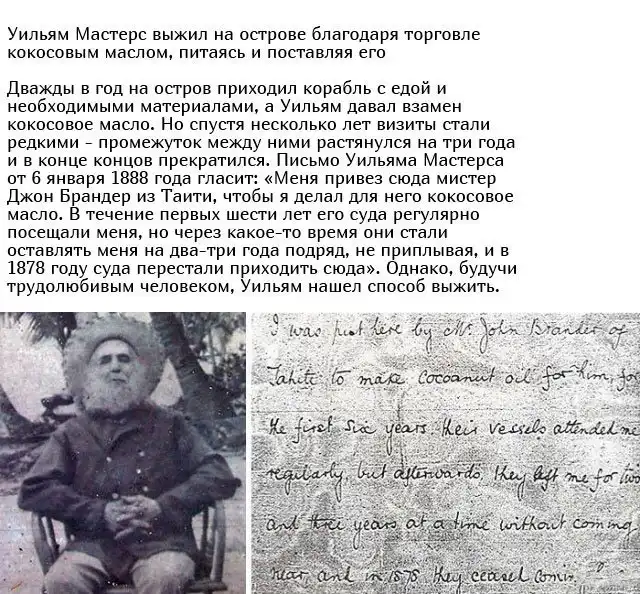 Уильям Мастерс выжил на острове благодаря торговле
кокосовым маслом, питаясь и поставляя его
Дважды в год на остров приходил корабль с едой и
необходимыми материалами, а Уильям давал взамен
кокосовое масло. Но спустя несколько лет визиты стали
редкими – промежуток между ними растянулся на три года
и в конце концов прекратился. Письмо Уильяма Мастерса
от 6 января 1888 года гласит: «Меня привез сюда мистер
Джон Брандер из Таити, чтобы я делал для него кокосовое
масло. В течение первых шести лет его суда регулярно
посещали меня, но через какое-то время они стали
оставлять меня на два-три года подряд, не приплывая, и в
1878 году суда перестали приходить сюда». Однако, будучи
трудолюбивым человеком, Уильям нашел способ выжить.
I was put here by Mr. John Brander of
Tahite to make cocoanut oil for him, for
the first six years their vessels attended me
regularly, but afterwards, they left me for two
and three years at a time without coming
near, and in 1878 they ceased comin. "